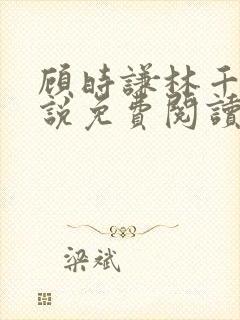 顾時謙林千
說免費閱讀
梁斌